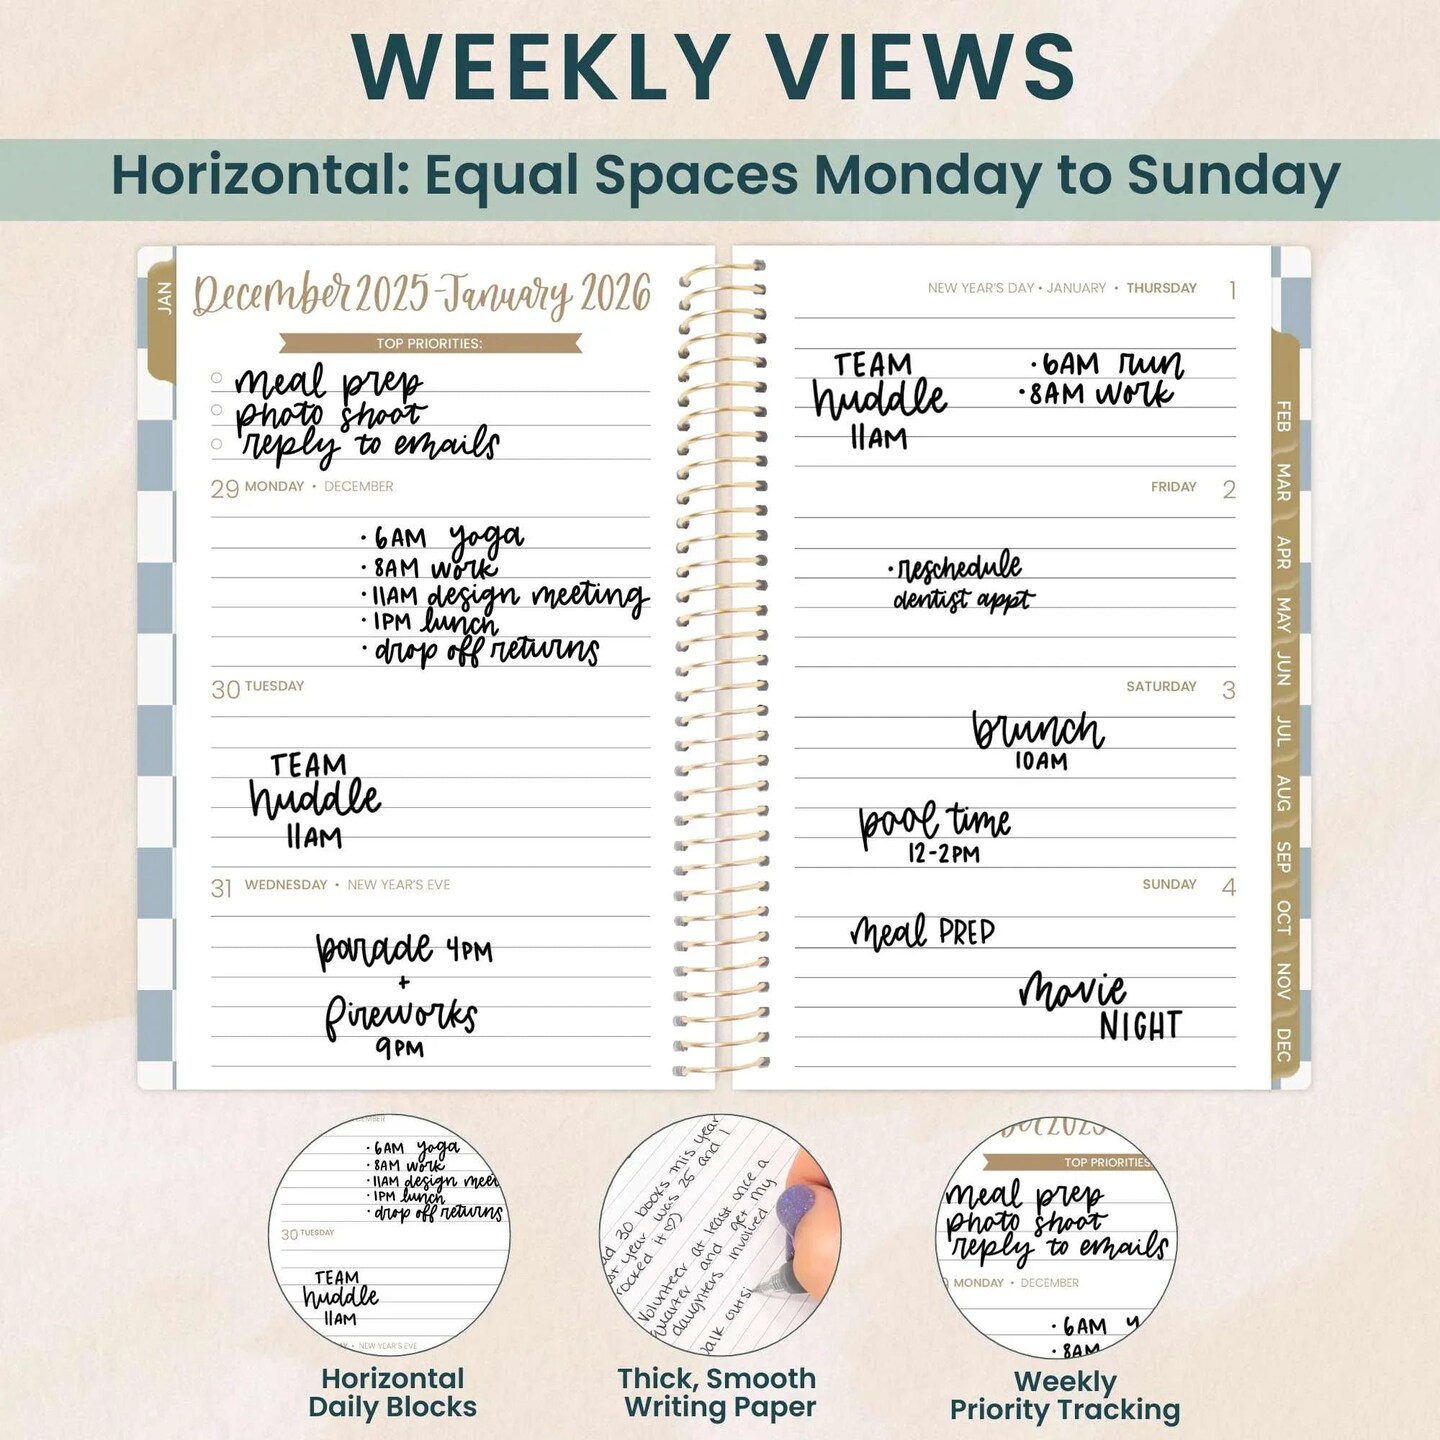 WEEKLY VIEWS
Horizontal: Equal Spaces Monday to Sunday
JAN
December 2025-January 2026
TOP PRIORITIES:
meal prep
photo shoot
reply to emails
29 MONDAY • DECEMBER
• 6AM yoga
• 8AM work
• 11AM design meeting
• 1PM lunch
• drop off returns
30 TUESDAY
TEAM
huddle
11AM
31 WEDNESDAY • NEW YEAR'S EVE
parade 4PM
+
fireworks
9PM
NEW YEAR'S DAY • JANUARY • THURSDAY 1
TEAM
huddle
11AM
• 6AM run
• 8AM work
FRIDAY 2
• reschedule
dentist appt
SATURDAY 3
brunch
10AM
pool time
12-2PM
SUNDAY 4
meal PREP
movie
NIGHT
FEB
MAR
APR
MAY
JUN
JUL
AUG
SEP
OCT
NOV
DEC
• 6AM yoga
• 8AM work
• 11AM design meet
• 1PM lunch
• drop off returns
30 TUESDAY
TEAM
huddle
11AM
• NEW YEAR'S EVE
30 books this year
year was 25 and I
rocked it
Volunteer at least once a
quarter and get my
daughters involved
2025
TOP PRIORITIES
meal prep
photo shoot
reply to emails
MONDAY • DECEMBER
• 6AM y
• 8AM
Horizontal
Daily Blocks
Thick, Smooth
Writing Paper
Weekly
Priority Tracking